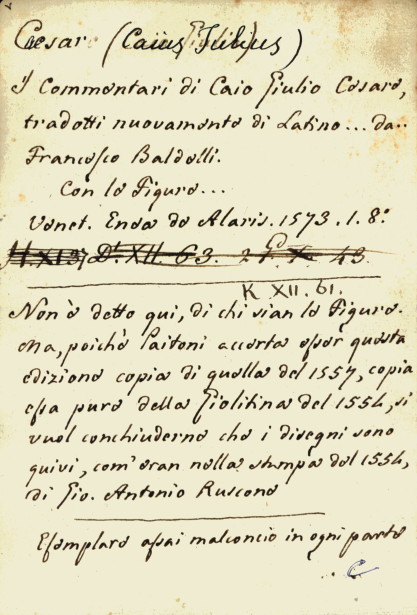 Caesar (Caius Iulius)
I Commentari di Caio Giulio Cesare,
tradotti nuovamente di Latino... da..
Francesco Baldelli.
Con le Figure...
Venet. Enea de Alaris. 1573. 1. 8º
D. XII. 63. 43
K XII. 61.
Non è detto qui, di chi sian le Figure.
Ma, poichè Paitoni accerta esser questa
edizione copia di quella del 1557, copia
essa pure della Giolitina del 1554, si
vuol conchiuderne che i disegni sono
quivi, com'eran nella stampa del 1554,
di Gio. Antonio Ruscone
Esemplare assai malconcio in ogni parte